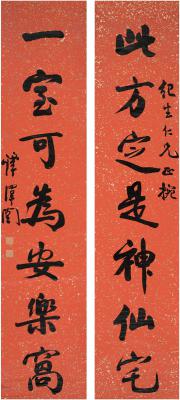 此方定是神仙宅
紀生仁兄正腕
一室可為安樂窩
惲澤闓